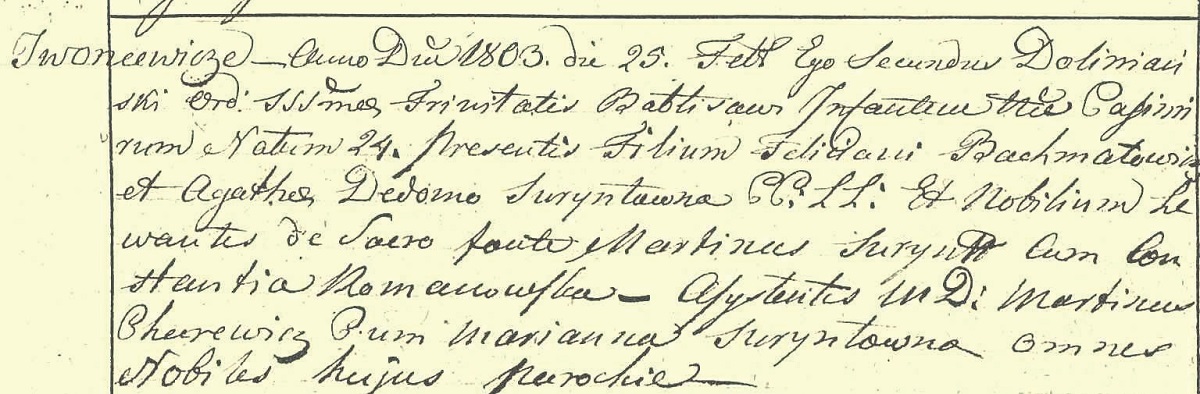 Iwoncewicze — Anno Dni 1803. die 25. Febr Ego Secundus Doliniań
ski Ord. SSSmae Trinitatis Babtisavi Infantem nne Casimi
rum Natum 24. presentis Filium Feliciani Bachmatowicz
et Agathae Dedomo Suryntowna CC: LL: Et Nobilium Le
vantes de Sacro fonte Martinus Surynt Cum Con
stantia Romanowska — Assystentes MD: Martinus
Cum Marianna Suryntowna omnes
Nobiles hujus Parochiae —